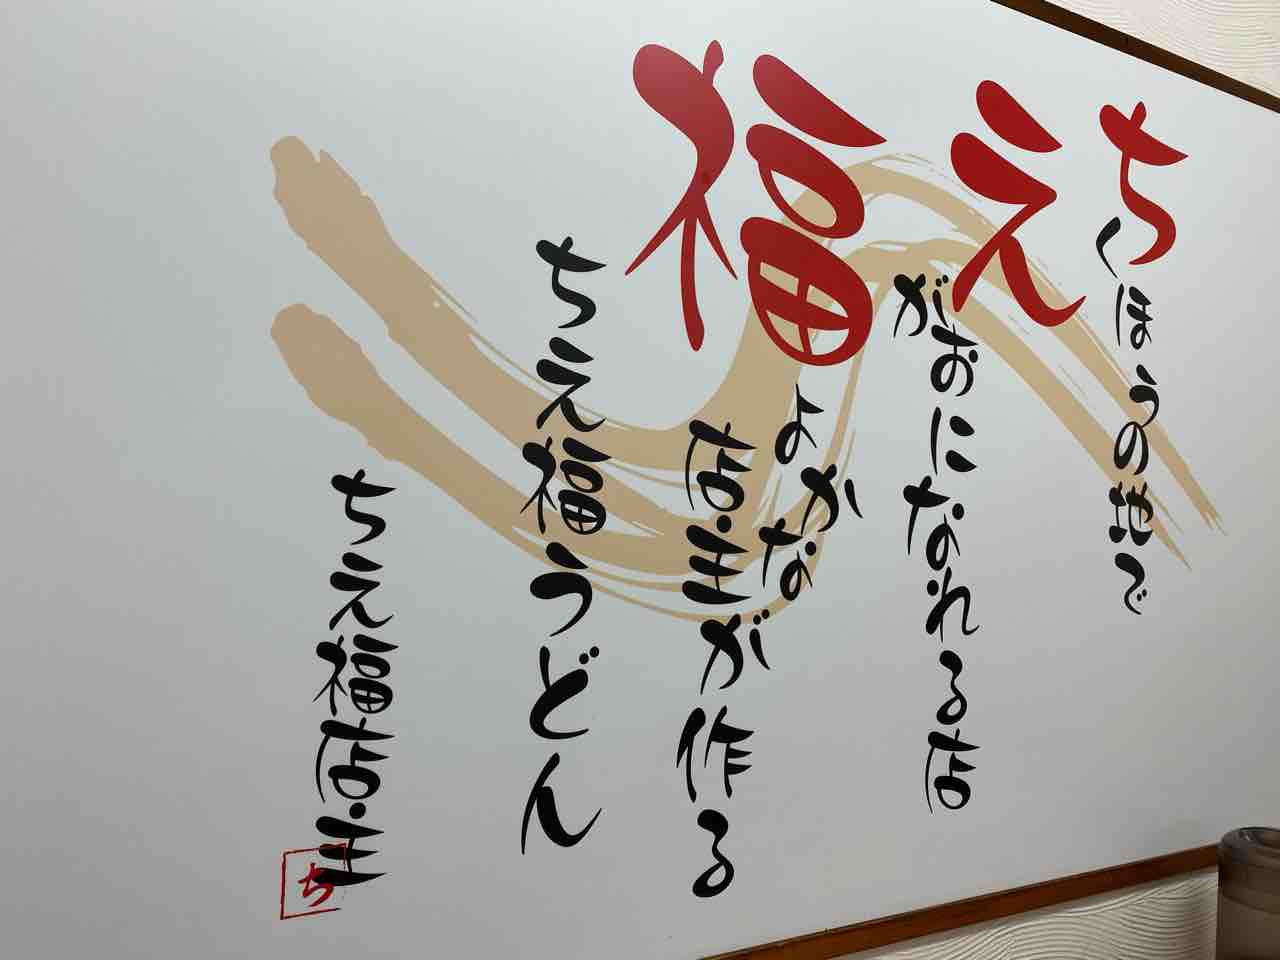 ちくほうの地で
えがおになれる店
福よかな
店主が作る
ちえ福うどん
ちえ福店主
ち